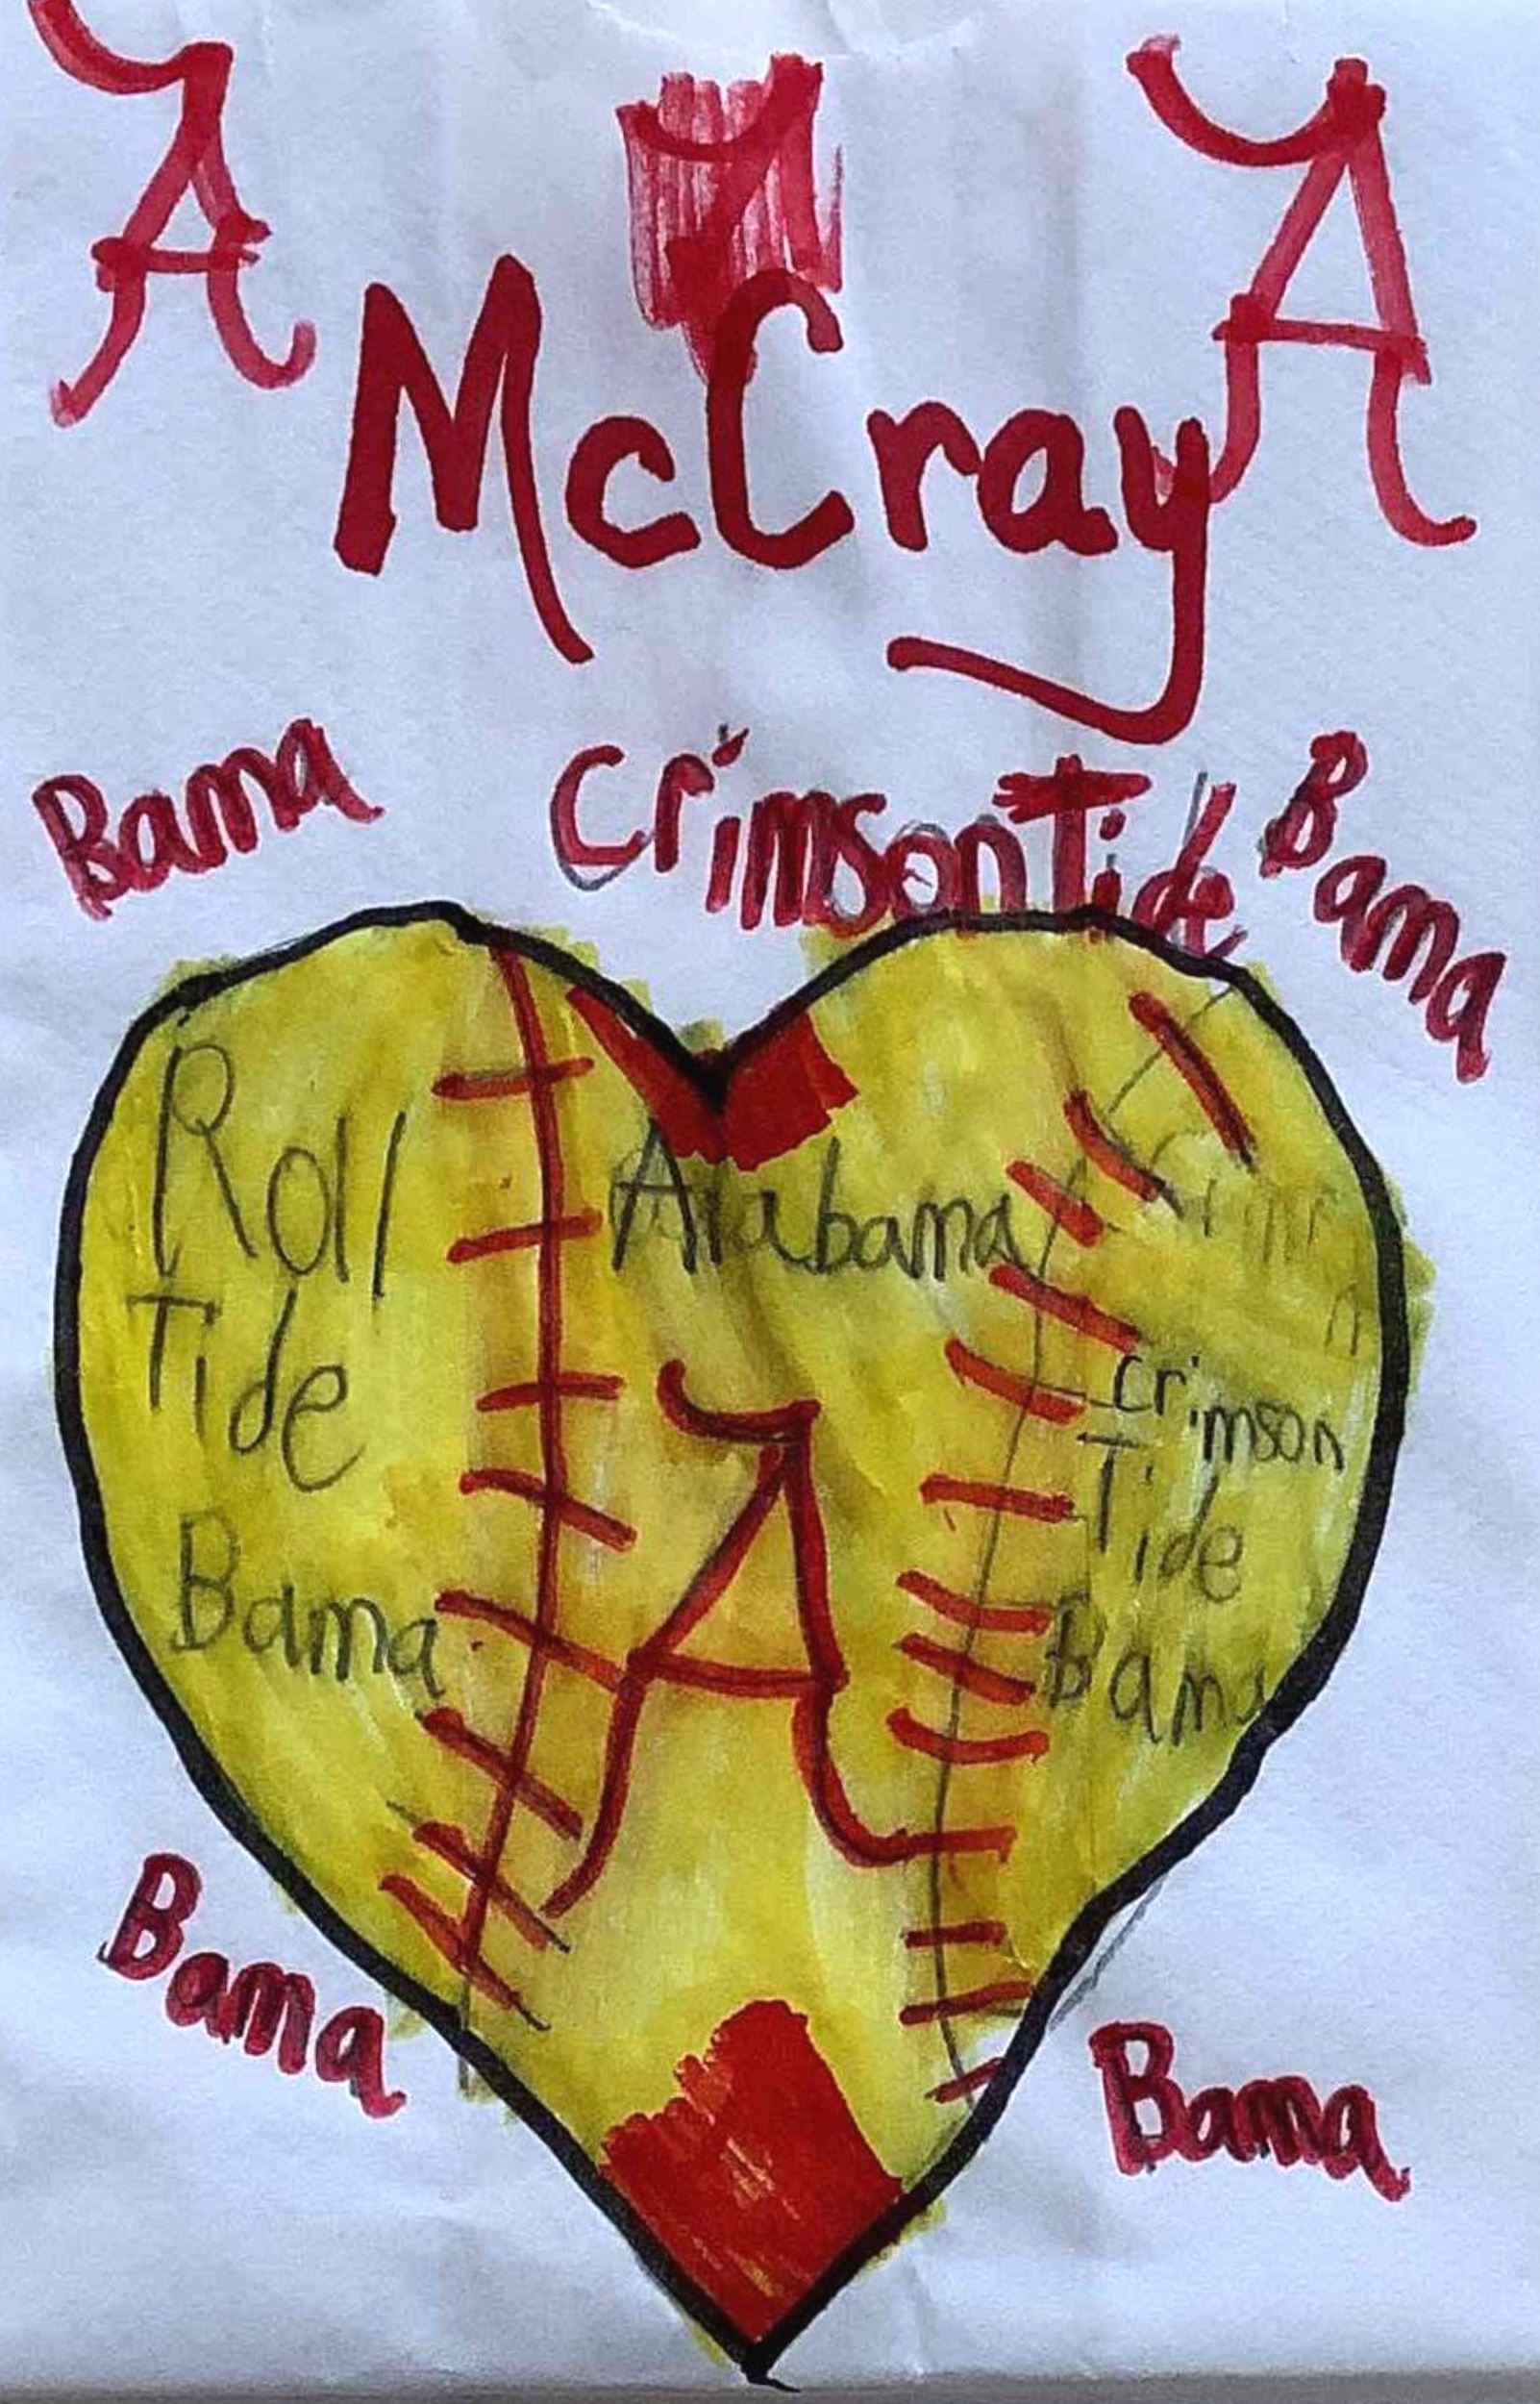 A A
McCray
Bama Crimson Tide Bama
Roll
Tide
Bama
Alabama
A
Crimson
Tide
Bama
Bama
Bama